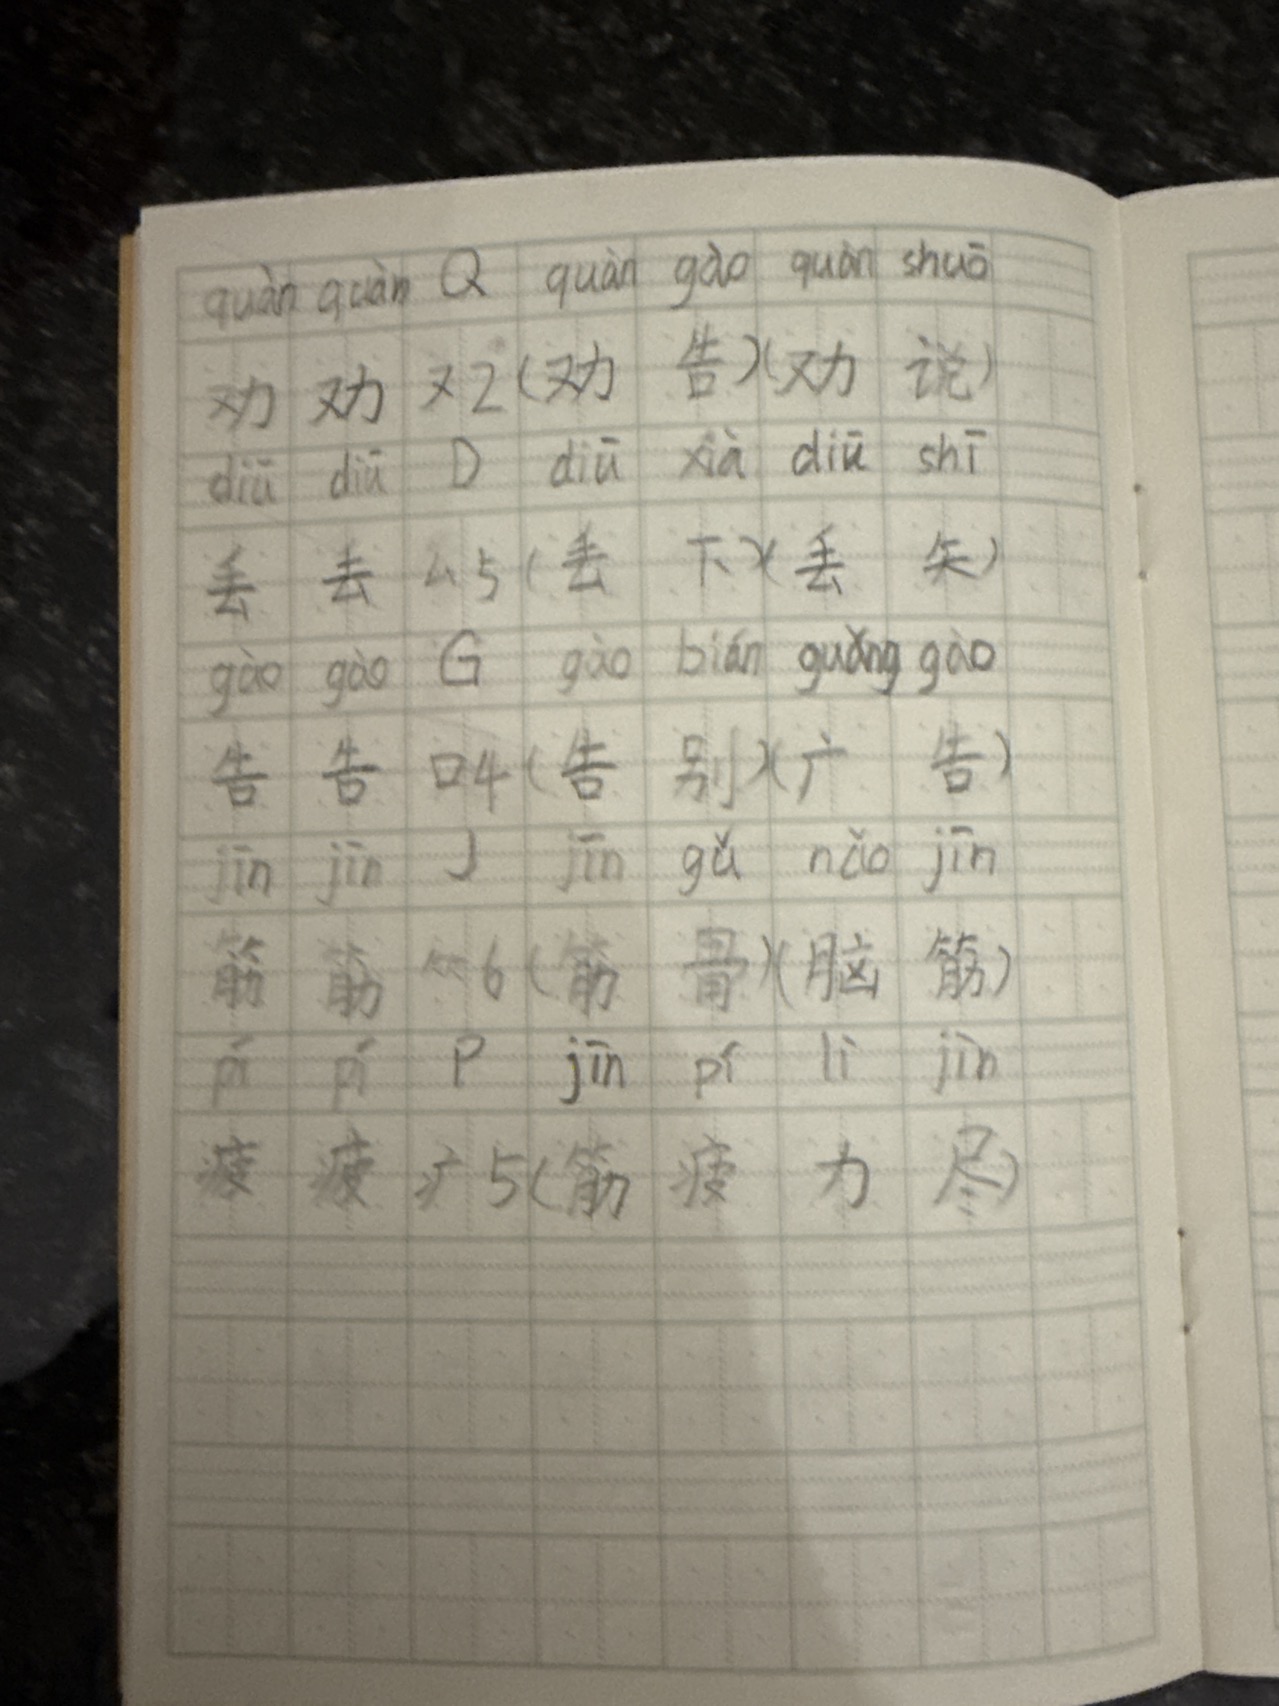 quàn quàn Q quàn gào quàn shuō
劝 劝 又2(劝 告)(劝 说)
diū diū D diū xià diū shī
丢 丢 厶5(丢 下)(丢 矢)
gào gào G gào bián guǎng gào
告 告 口4(告 别)(广 告)
jīn jīn J jīn gǔ nǎo jīn
筋 筋 𥫗6(筋 骨)(脑 筋)
pí pí P jīn pí lì jìn
疲 疲 疒5(筋 疲 力 尽)